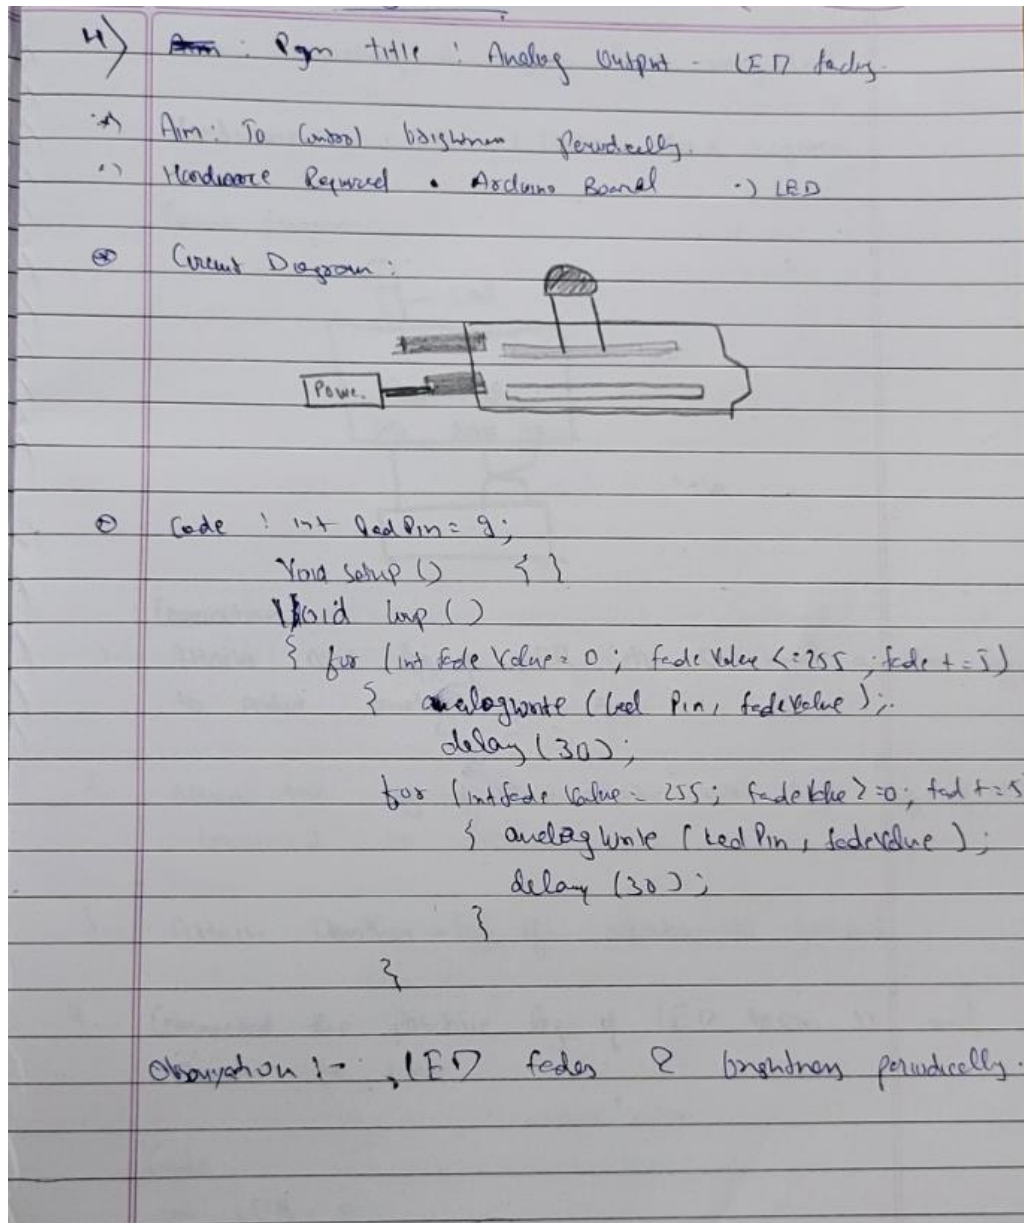 4) Aim : Pgm title : Analog Output - LED fading.
Aim : To Control brightness Periodically.
Hardware Required • Arduino Board •) LED
Circuit Diagram :
Power
Code : int ledPin = 9;
Void setup () { }
Void loop ()
{ for (int fade Value = 0, fade Value <= 255 ; fade + = 5)
{ analogwrite (led Pin, fadevalue );
delay (30);
for (int fade Value = 255; fadevalue >=0; fad +=5
{ analog Write ( Led Pin , fadevalue );
delay (30);
}
}
Observation :- LED fades & brightness periodically.